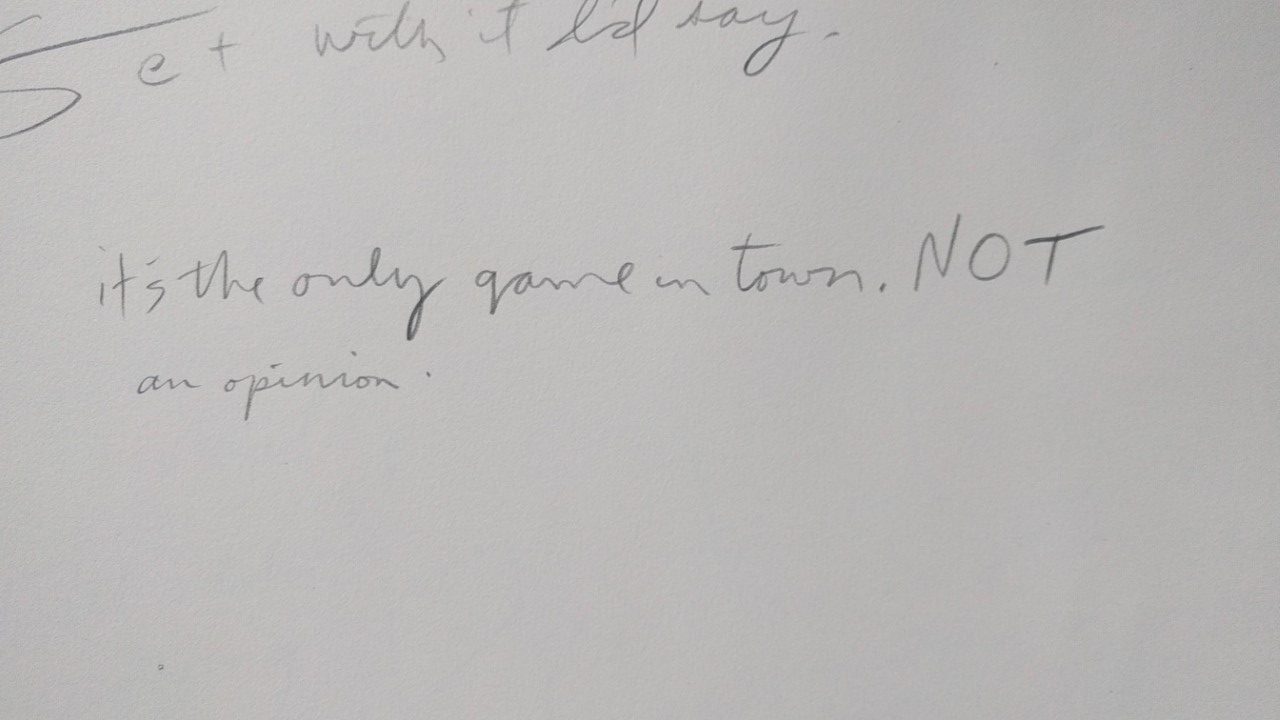 Get with it I'd say.
it's the only game in town. NOT
an opinion.